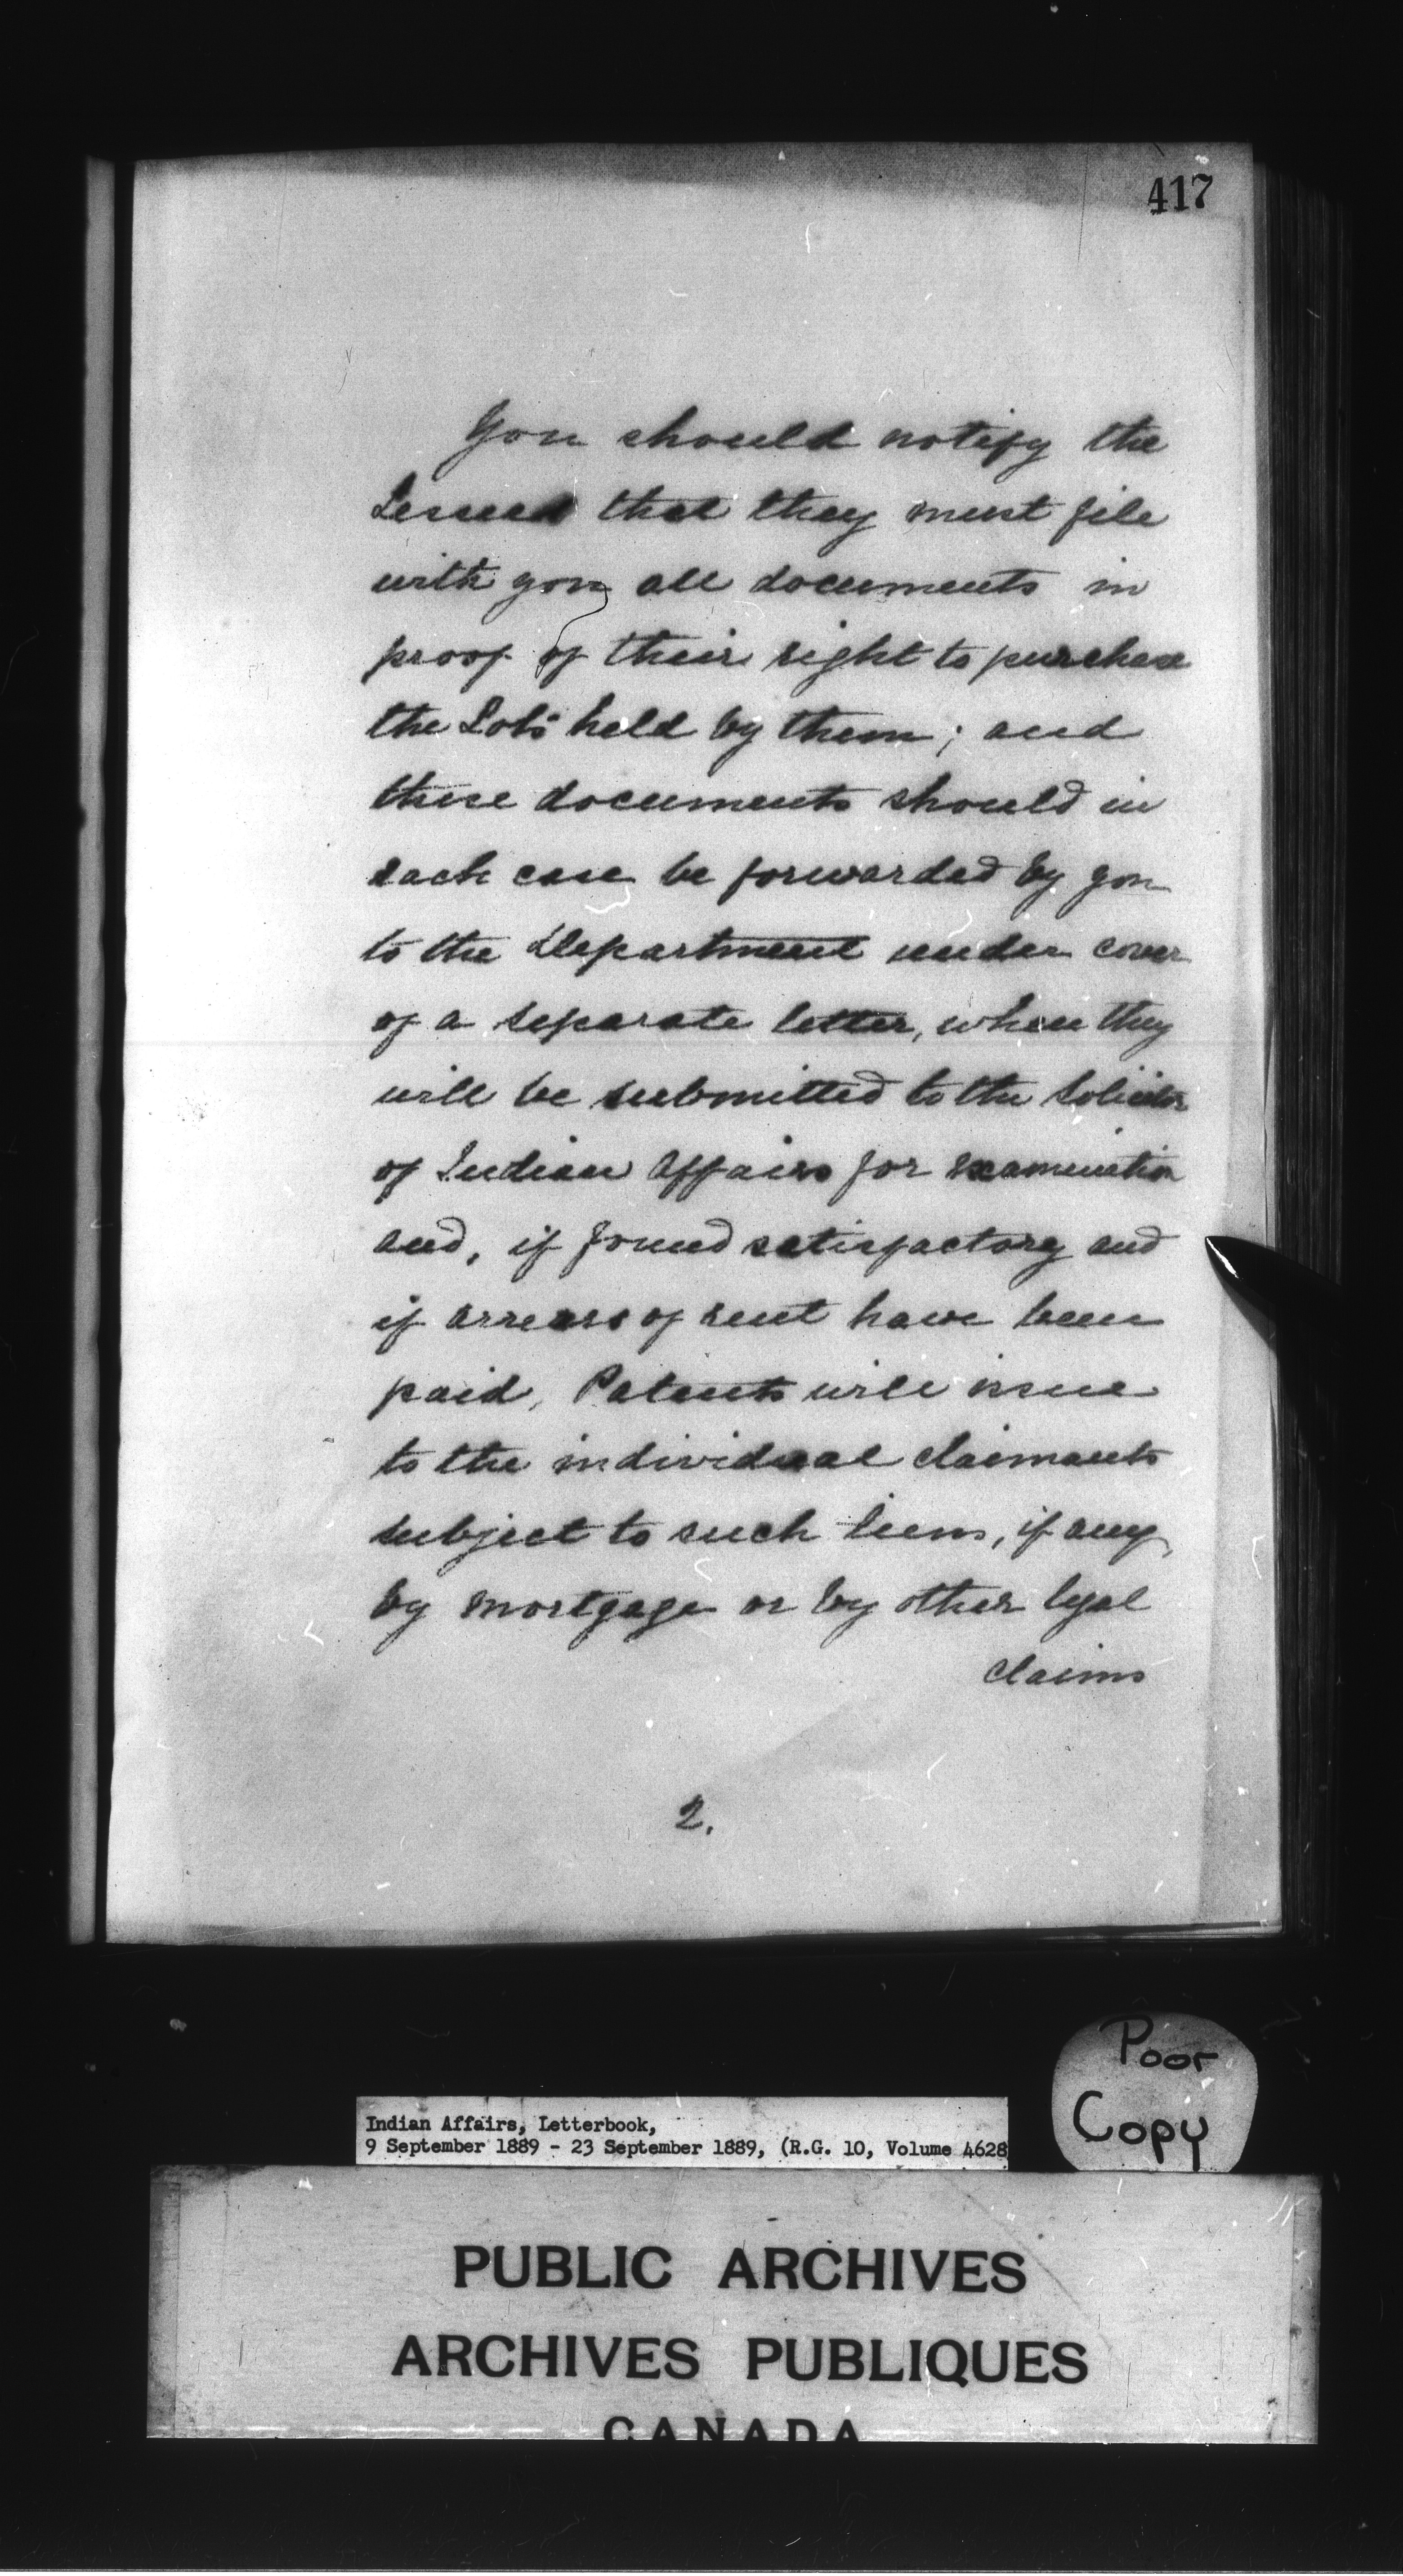 417
You should notify the
Lessees that they must file
with you all documents in
proof of their right to purchase
the Lots held by them; and
these documents should in
each case be forwarded by you
to the Department under cover
of a separate letter, when they
will be submitted to the Solicitor
of Indian Affairs for examination
and, if found satisfactory and
if arrears of rent have been
paid, Patents will issue
to the individual claimants
subject to such liens, if any,
by mortgage or by other legal
claims
2.
Poor
Copy
Indian Affairs, Letterbook,
9 September 1889 - 23 September 1889, (R.G. 10, Volume 4628
PUBLIC ARCHIVES
ARCHIVES PUBLIQUES
CANADA